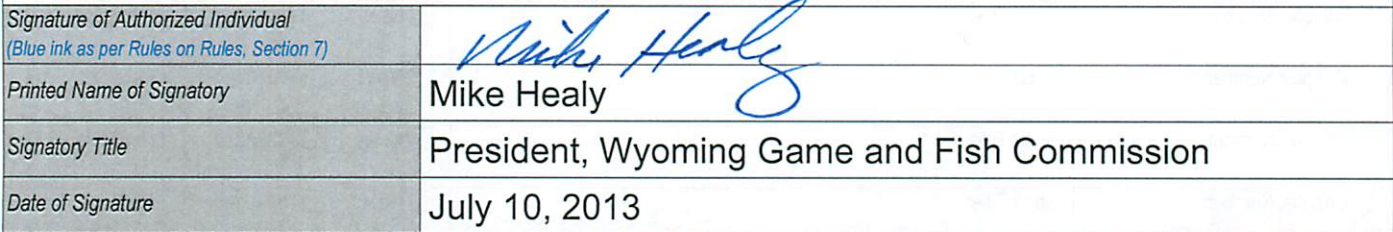 Signature of Authorized Individual
(Blue ink as per Rules on Rules, Section 7)
Mike Healy
Printed Name of Signatory
Mike Healy
Signatory Title
President, Wyoming Game and Fish Commission
Date of Signature
July 10, 2013